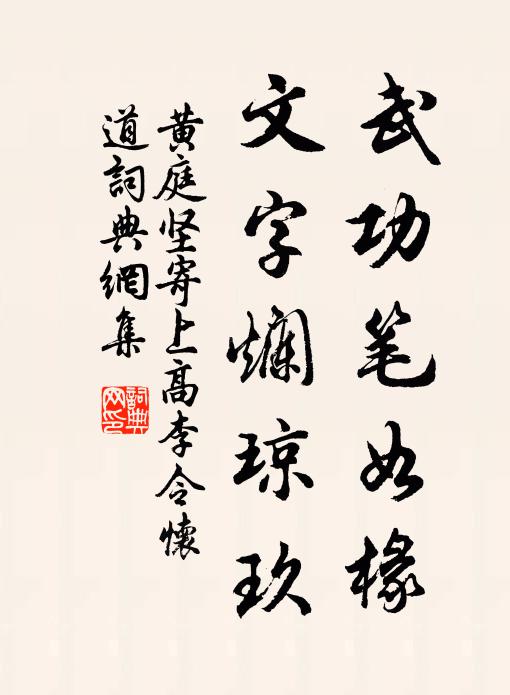 武功笔如椽
文字爛琼玖
黄庭坚寄上高李令懷
道詞典網集
詞典网印